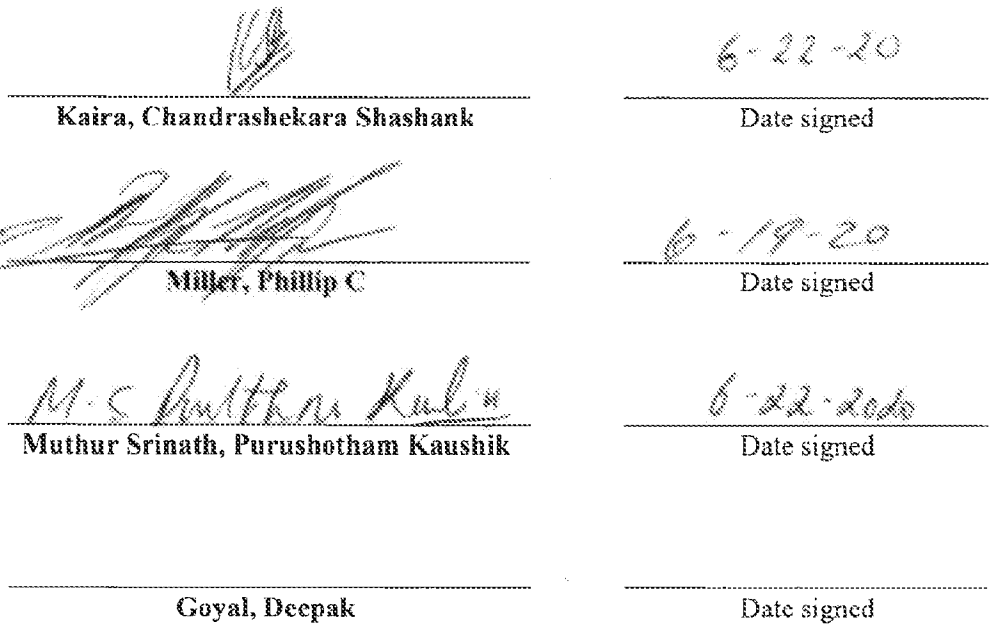 6-22-20
Kaira, Chandrashekara Shashank Date signed
6-19-20
Miller, Phillip C Date signed
M.S
6-22-2020
Muthur Srinath, Purushotham Kaushik Date signed
Goyal, Deepak Date signed